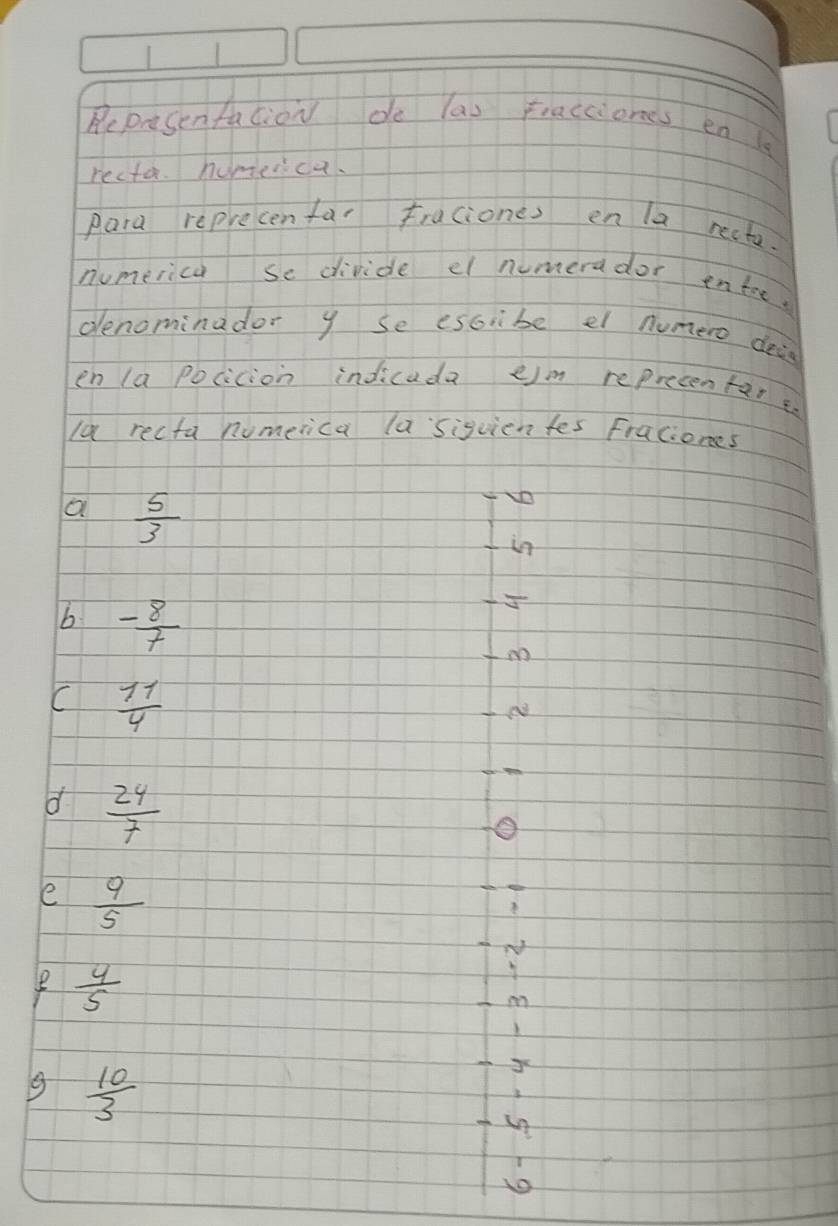 Representación de las Fracciones en la
recta. numerica.
para reprecentar Fraciones en la recta.
numerica se divide el numerador entre
denominador y se escribe el numero
en la pocicion indicada ejm reprecentar en
la recta numerica la siguientes Fraciones
a 5/3
b -8/7
c 11/4
d 24/7
e 9/5
f 4/5
g 10/3
6
5
4
3
2
1
0
-1
-2
-3
-4
-5
-6